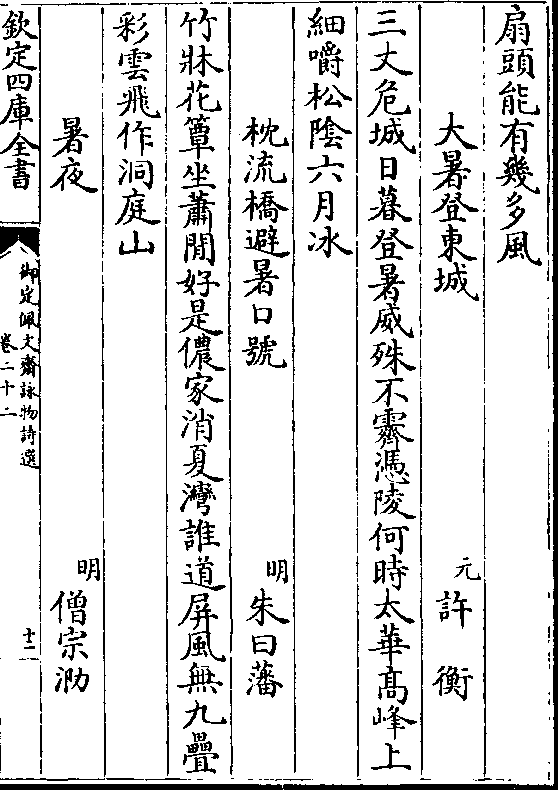 扇頭能有幾多風
大暑登東城 元 許衡
三丈危城日暮登暑威殊不霽憑陵何時太華髙峰上
細嚼松陰六月冰
枕流橋避暑口號 明 朱曰藩
竹牀花簟坐蕭閒好是儂家消夏灣誰道屏風無九疊
彩雲飛作洞庭山
暑夜 明 僧宗泐
欽定四庫全書
御定佩文齋詠物詩選
卷二十二
十二